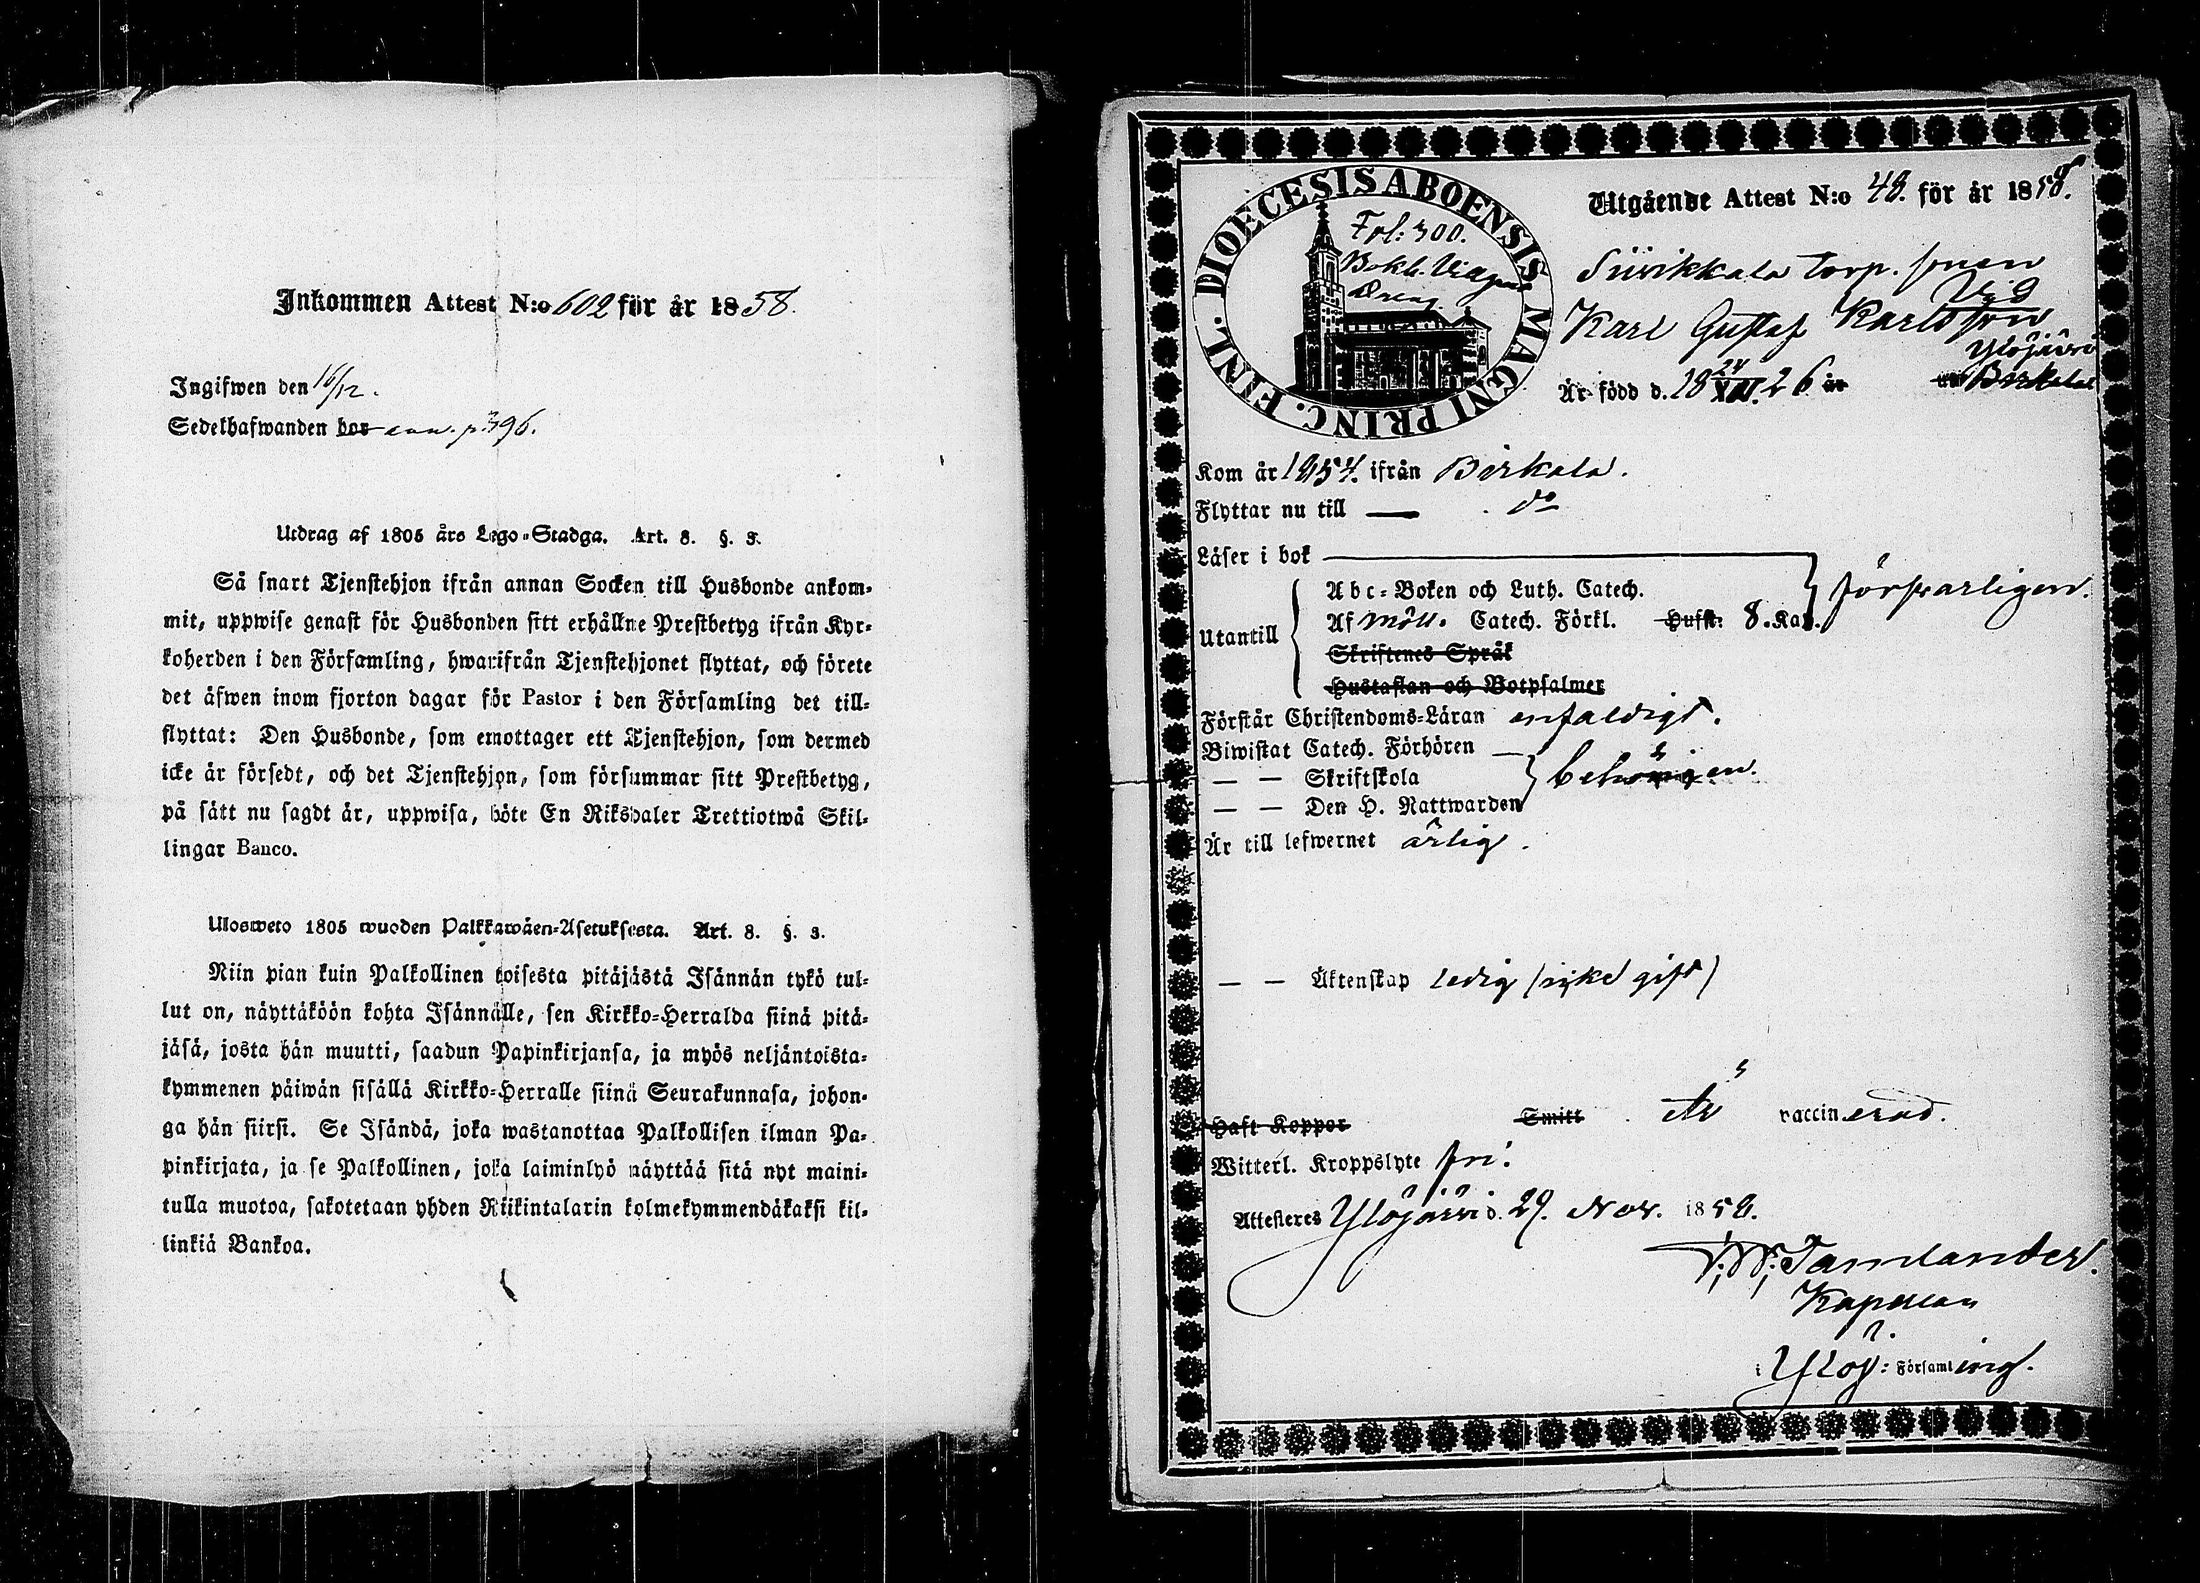 Inkommen Attest N:o 602 för år 1858.
Ingifwen den 16/12.
Sedelhafwanden bor ann. p. 396.
Utdrag af 1805 års Lego-Stadga. Art. 8. §. 3.
Så snart Tjenstehjon ifrån annan Socken till Husbonde ankom-
mit, uppwise genast för Husbonden sitt erhållne Prestbetyg ifrån Kyr-
koherden i den Församling, hwarifrån Tjenstehjonet flyttat, och förete
det äfwen inom fjorton dagar för Pastor i den Församling det till-
flyttat: Den Husbonde, som emottager ett Tjenstehjon, som dermed
icke är försedt, och det Tjenstehjon, som försummar sitt Prestbetyg,
på sätt nu sagdt är, uppwisa, böte En Riksdaler Trettiotwå Skil-
lingar Banco.
Ulosweto 1805 wuoden Palkkawäen-Asetuksesta. Art. 8. §. 3.
Niin pian kuin Palkollinen toisesta pitäjästä Isännän tykö tul-
lut on, näyttäköön kohta Isännälle, sen Kirkko-Herralda siinä pitä-
jäsä, josta hän muutti, saadun Papinkirjansa, ja myös neljäntoista-
kymmenen päiwän sisällä Kirkko-Herralle siinä Seurakunnasa, johon-
ga hän siirsi. Se Isändä, joka wastanottaa Palkollisen ilman Pa-
pinkirjata, ja se Palkollinen, joka laiminlyö näyttää sitä nyt maini-
tulla muotoa, sakotetaan yhden Riikintalarin kolmekymmendäkaksi kil-
linkiä Bankoa.
DIOECESIS ABOENSIS MAGNI PRINC. FINL.
Fol: 300.
Bokh.
Dreng.
Utgående Attest N:o 48. för år 1858.
Siivikkala torp. sonen
Karl Gustaf Karlsson
Ylöjärvi
Är född d. 18 24/XII 26 år uti Birkala
Kom år 1854. ifrån Birkala.
Flyttar nu till — do
Läser i bok
Abc-Boken och Luth. Catech.
försvarligen.
Utantill
Af Möll. Catech. Förkl. Husst: 8. Kap.
Skriftenes Språk
Hustaflan och Botpsalmer
Förstår Christendoms-Läran enfaldigt.
Biwistat Catech. Förhören —
— — Skriftskola
behörigen.
— — Den H. Nattwarden
Är till lefwernet ärlig.
— — Äktenskap ledig (icke gift)
Haft Koppor Smitt Är vaccinerad.
Witterl. Kroppslyte fri.
Attesteres Ylöjärvi d. 29. Nov. 1858.
Tamlander.
Kapellan
i Ylöj: Församling.